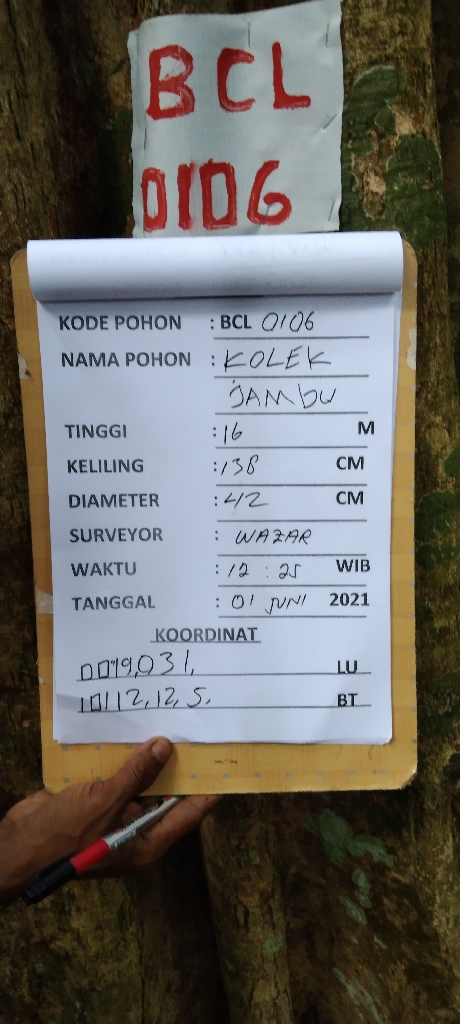 BCL
0106
KODE POHON : BCL 0106
NAMA POHON : KOLEK
JAMBU
TINGGI : 16 M
KELILING : 138 CM
DIAMETER : 42 CM
SURVEYOR : WAZAR
WAKTU : 12 : 25 WIB
TANGGAL : 01 JUNI 2021
KOORDINAT
LU
BT